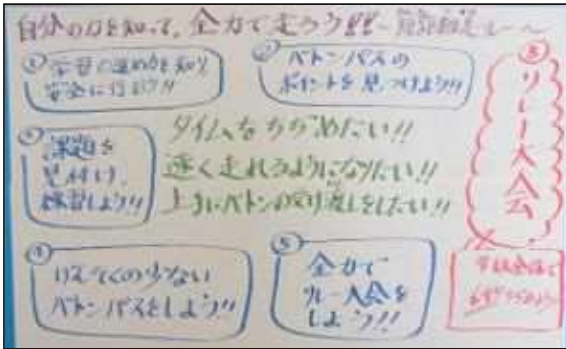 自分の力を知って、全力で走ろう!!~
① 学習の進め方を知り
安全に行おう!!
② バトンパスの
ポイントを見つけよう!!
③ 課題を
見付け、
練習しよう!!
タイムをちぢめたい!!
速く走れるようになりたい!!
上手にバトンの受け渡しをしたい!!
④
の少ない
バトンパスをしよう!!
⑤ 全力で
リレー大会を
しよう!!
リレー大会